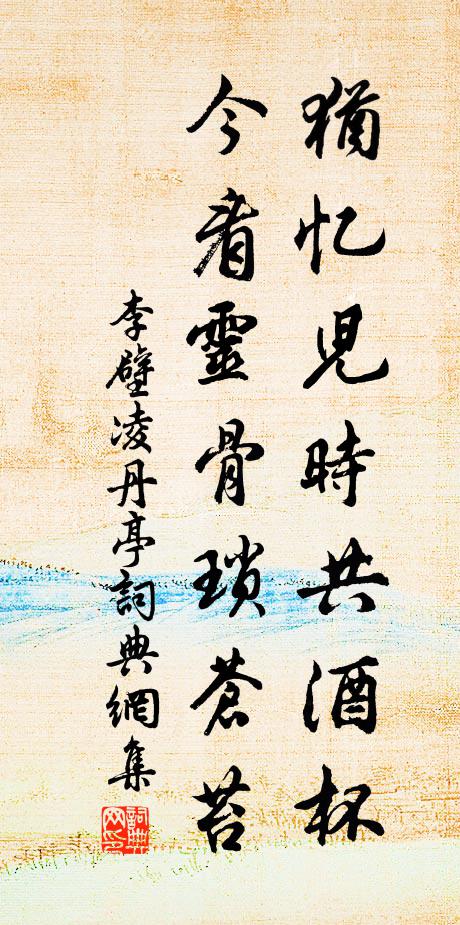 猶忆児時共酒杯
今看靈骨瑣蒼苔
李壁凌丹亭詞典網集
詞典網印